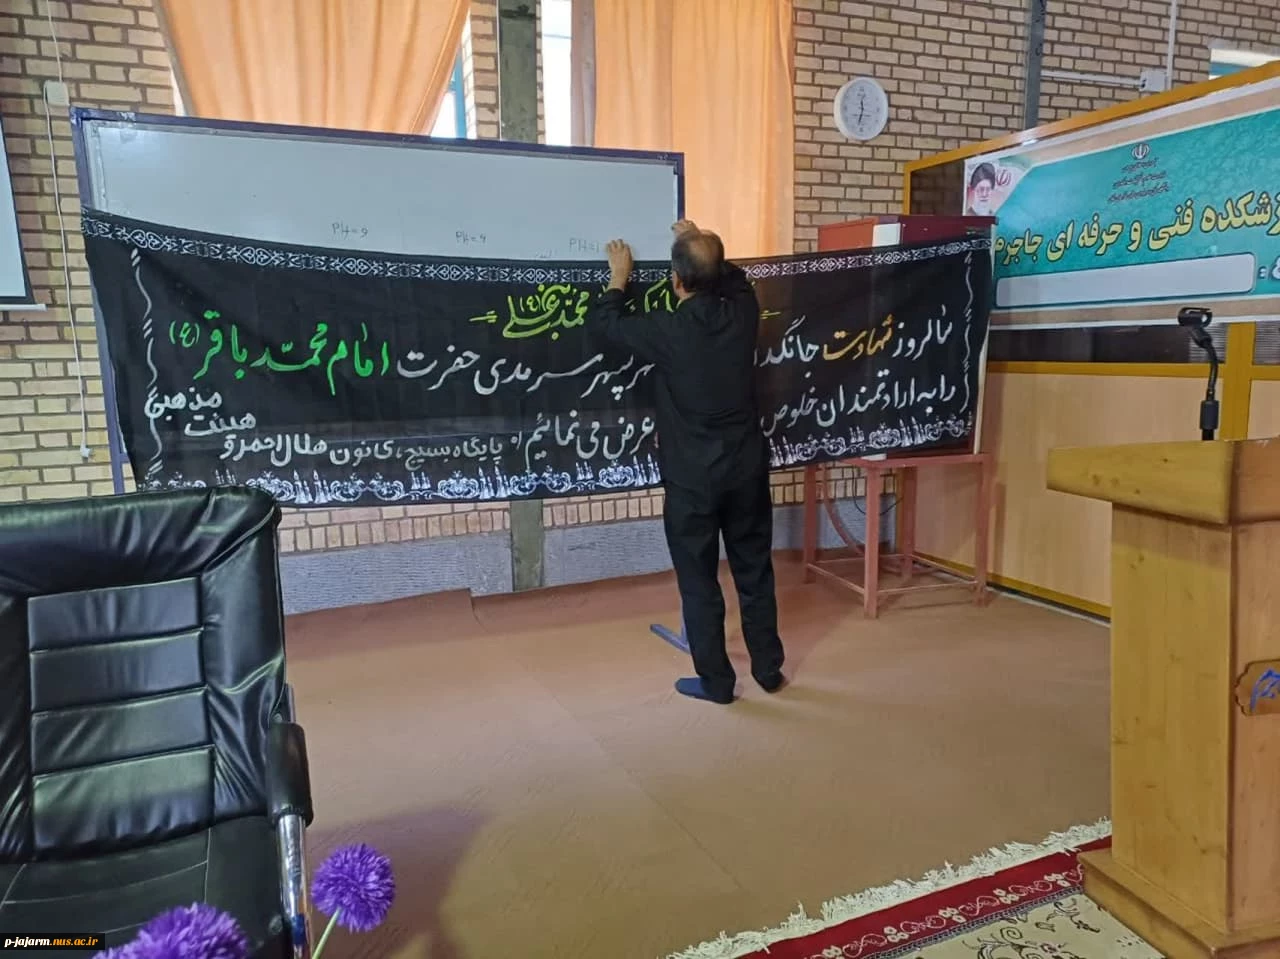 PH=9
PH=4
PH=1
محمد (ع) علی
سالروز شهادت جانگد سپهر سرمدی حضرت امام محمد باقر (ع)
را به ارادتمندان خلوص عرض می نمائیم
از پایگاه بسیج، کانون هلال احمر و هیئت مذهبی
زشکده فنی و حرفه ای جاجرم
p-jajarm.nus.ac.ir